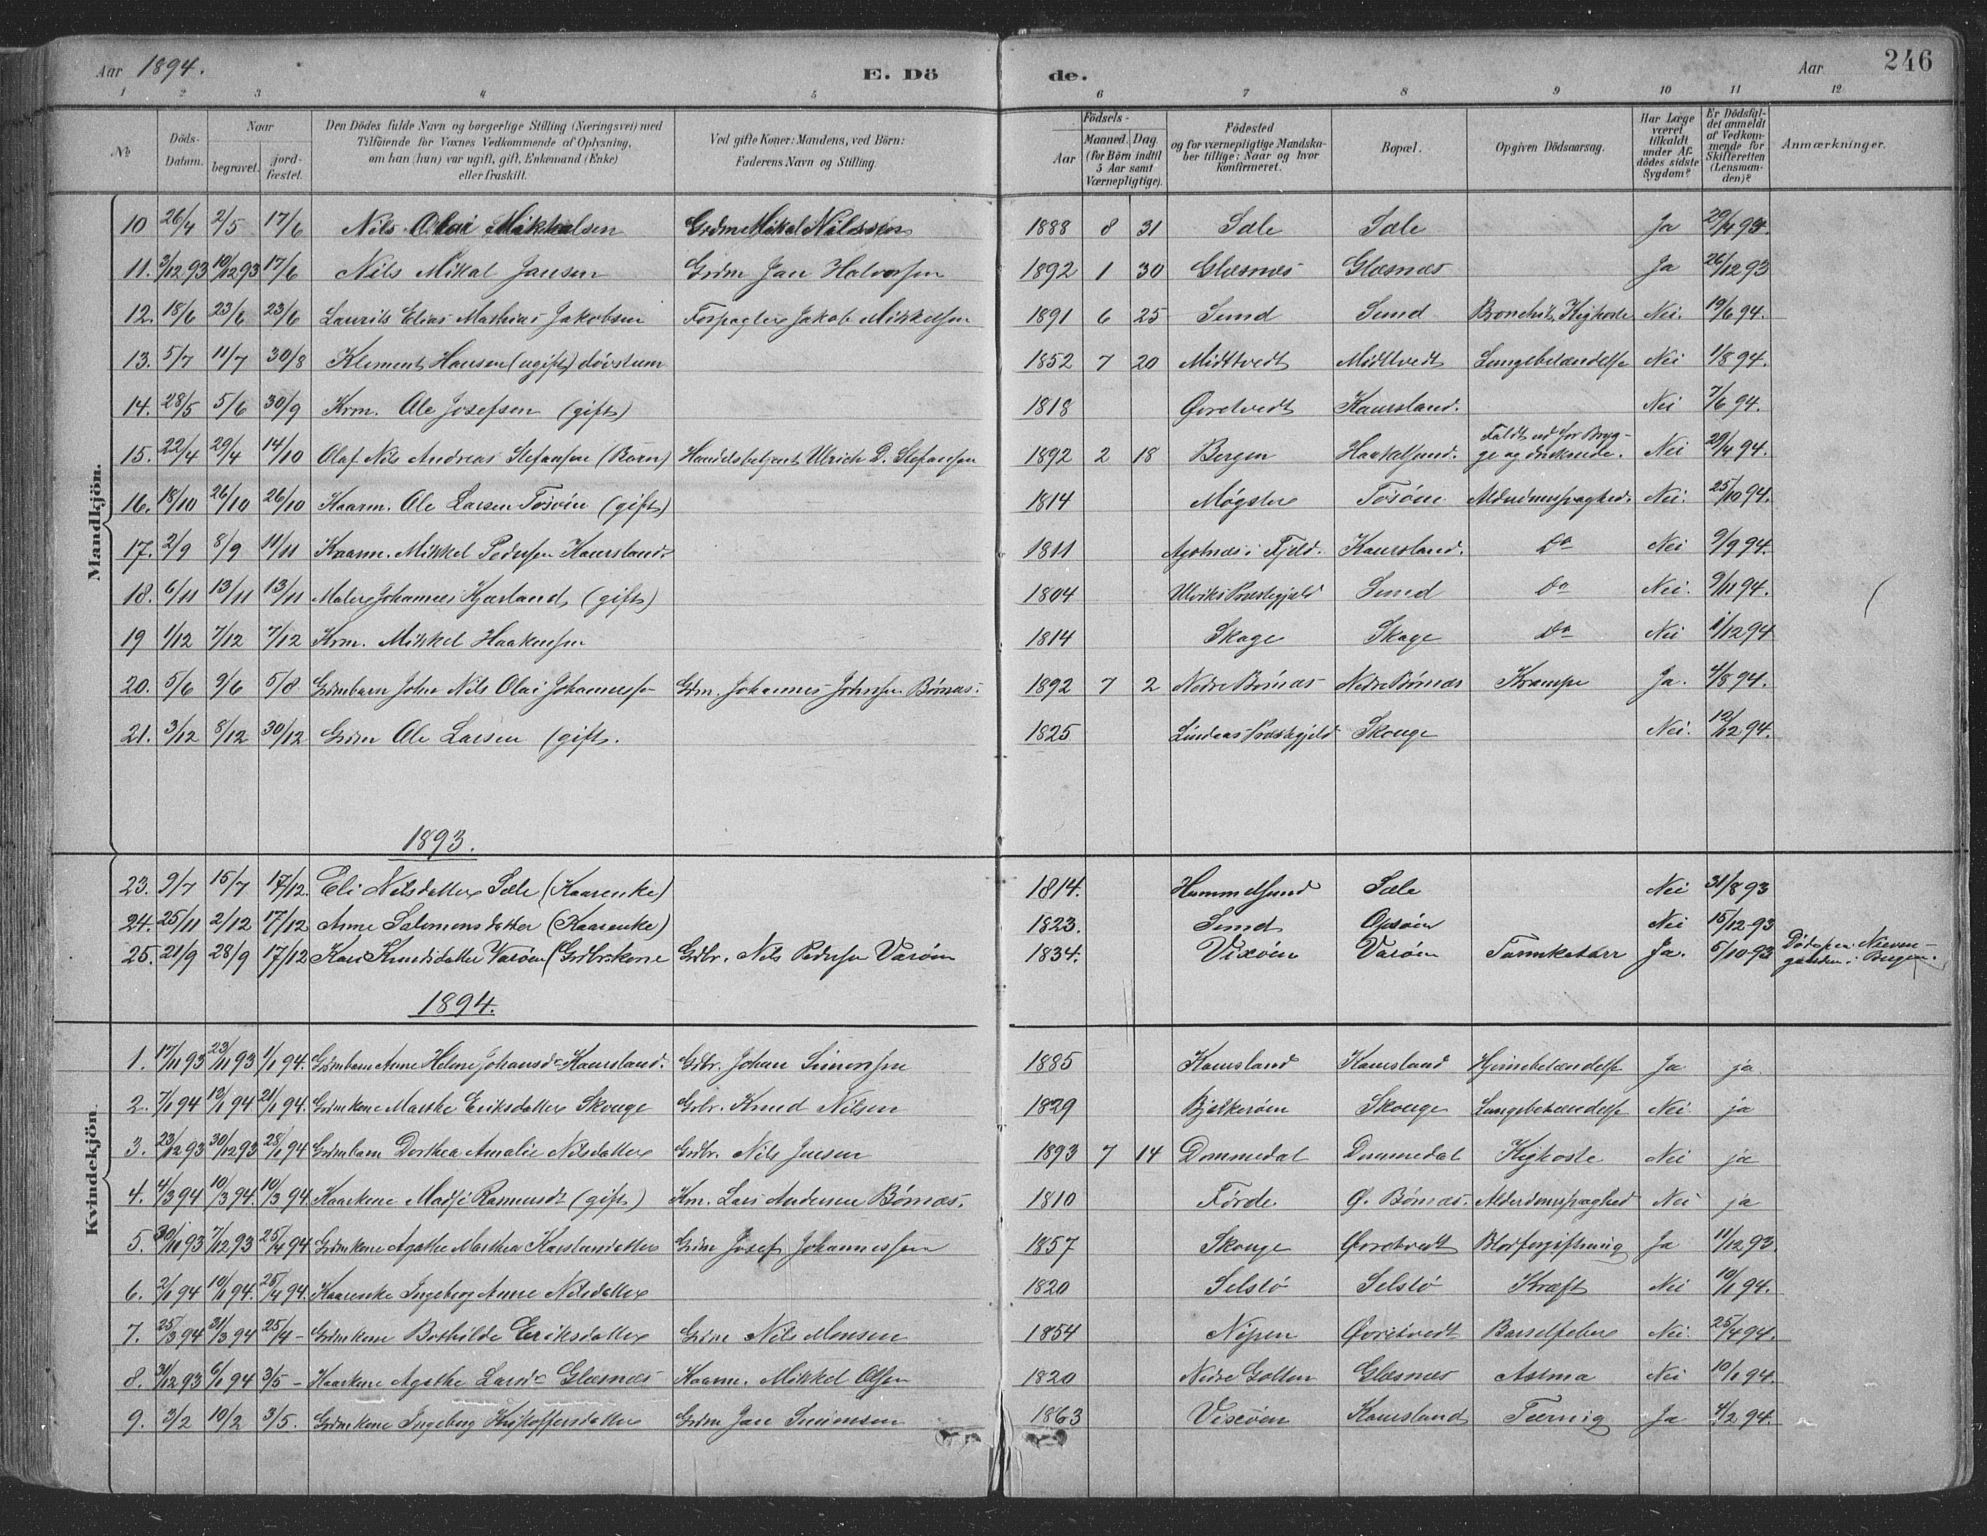 Aar 1894. E. Dö de. Aar 246
1 2 3 4 5 6 7 8 9 10 11 12
№ Döds-Datum. Naar begravet. jord-fæstet. Den Dödes fulde Navn og borgerlige Stilling (Næringsvei) med Tilföiende for Voxnes Vedkommende af Oplysning, om han (hun) var ugift, gift, Enkemand (Enke) eller fraskilt. Ved gifte Koner: Mandens, ved Börn: Faderens Navn og Stilling. Födsels- Aar Maaned. Dag (for Börn indtil 5 Aar samt Værnepligtige). Födested og for værnepligtige Mandskaber tillige: Naar og hvor Konfirmeret. Bopæl. Opgiven Dödsaarsag. Har Læge været tilkaldt under Afdödes sidste Sygdom? Er Dödsfaldet anmeldt af Vedkommende for Skifteretten (Lensmanden)? Anmærkninger.
Mandkjön.
10 26/4 2/5 17/6 Nils Olai Mikkalsen Grdm Mikal Nilssen 1888 8 31 Sæle Sæle Ja 29/4 94.
11. 3/12 93 10/12 93 17/6 Nils Mikal Jansen Grdm Jan Halvorsen 1892 1 30 Glæsnæs Glæsnæs Ja 26/12 93
12. 18/6 23/6 23/6 Laurits Elias Mathias Jakobsen Forpagter Jakob Mikkelsen 1891 6 25 Sund Sund Bronchit, Kighoste Nei. 19/6 94.
13. 5/7 11/7 30/8 Klement Hansen (ugift) døvstum 1852 7 20 Midttvedt Midttvedt Lungebetændelse Nei 1/8 94.
14. 28/5 5/6 30/9 Krm. Ole Josefsen (gift) 1818 Øvretvedt Kaursland. Nei 7/6 94.
15. 22/4 29/4 14/10 Olaf Nils Andreas Stefansen (Barn) Handelsbetjent Ulrich D. Stefansen 1892 2 18 Bergen Haakelsund. Faldt ud for Brygge og druknede. Nei 29/4 94.
16. 18/10 26/10 26/10 Kaarm. Ole Larsen Tosøen (gift) 1814 Møgster Tosøen Alderdomssvaghed. Nei. 25/10 94.
17. 2/9 8/9 11/11 Kaarm. Mikkel Pedersen Kaursland. 1811 Agotnæs i Fjeld. Kaursland. Do Nei 9/9 94.
18. 6/11 13/11 13/11 Maler Johannes Kjærland, (gift) 1804 Ulviks Præstegjeld Sund Do Nei. 9/11 94.
19 1/12 7/12 7/12 Krm. Mikkel Haakensen 1814 Skage Skage Do Nei 1/12 94
20. 5/6 9/6 5/8 Grdmbarn John Nils Olai Johannessen Grdm. Johannes Johnsen Børnæs. 1892 7 2 Nedre Børnæs Nedre Børnæs Krampe Ja. 4/8 94.
21. 3/12 8/12 30/12 Grdm Ole Larsen (gift. 1825 Lindaas Præstegjeld Skouge Nei. 12/12 94.
1893.
Kvindekjön.
23. 9/7 15/7 17/12 Eli Nilsdatter Sæle (Kaarenke) 1814. Hummelsund Sæle Nei 31/8 93
24. 25/11 2/12 17/12 Anne Salomonsdatter (Kaarenke) 1823. Sund Opsøen Nei 15/12 93
25. 21/9 28/9 17/12 Kari Knudsdatter Varøen (Grdbr.kone Grdbr. Nils Pedersen Varøen 1834. Vixøen Varøen Tarmkatarr Ja. 5/10 93 Død i Bergen.
1894.
1. 17/11 93 23/11 93 1/1 94. Grdmbarn Anne Helene Johansd. Kaursland. Grdbr. Johan Simonsen 1885 Kaursland Kaursland Hjernebetændelse Ja ja
2. 7/1 94 13/1 94 21/1 94. Grdmkone Marthe Eriksdatter Skouge Grdbr. Knud Nilsen 1829 Bjelkerøen Skouge Lungebetændelse Nei. ja
3. 23/12 93 30/12 93 28/1 94 Grdmbarn Dorthea Amalie Nilsdatter Grdbr. Nils Jensen 1893 7 14 Dommedal Dommedal Kighoste Nei ja
4. 4/3 94 10/3 94. 10/3 94. Kaarkone Madsi Rasmusdt (gift) Krm. Lars Andersen Børnæs. 1810 Førde Ø. Børnæs. Alderdomssvaghed Nei ja
5. 30/11 93 7/12 93 25/4 94 Grdmkone Agathe Marthea Karstensdatter Grdm Josef Johannessen 1857 Skouge Øvretvedt Blodforgiftning Ja 11/12 93.
6. 2/1 94 10/1 94. 25/4 94. Kaarenke Ingeborg Anne Nilsdatter 1820 Selstø Selstø Kræft Nei 10/1 94.
7. 25/3 94 31/3 94 25/4 - Grdmkone Bothilde Eriksdatter Grdm Nils Monsen 1854 Nipen Øvretvedt Barselfeber Nei. 25/4 94.
8. 31/12 93 6/1 94 3/5 - Kaarkone Agathe Larsd. Glæsnæs Kaarm. Mikkel Olsen 1820 Nedre Golten Glæsnæs Astma Nei 10/1 94.
9. 3/2 10/2 3/5. Grdmkone Ingeborg Kristoffersdatter Grdm Jan Simonsen 1863 Vixøen Kaursland Tæring Ja 4/2 94.